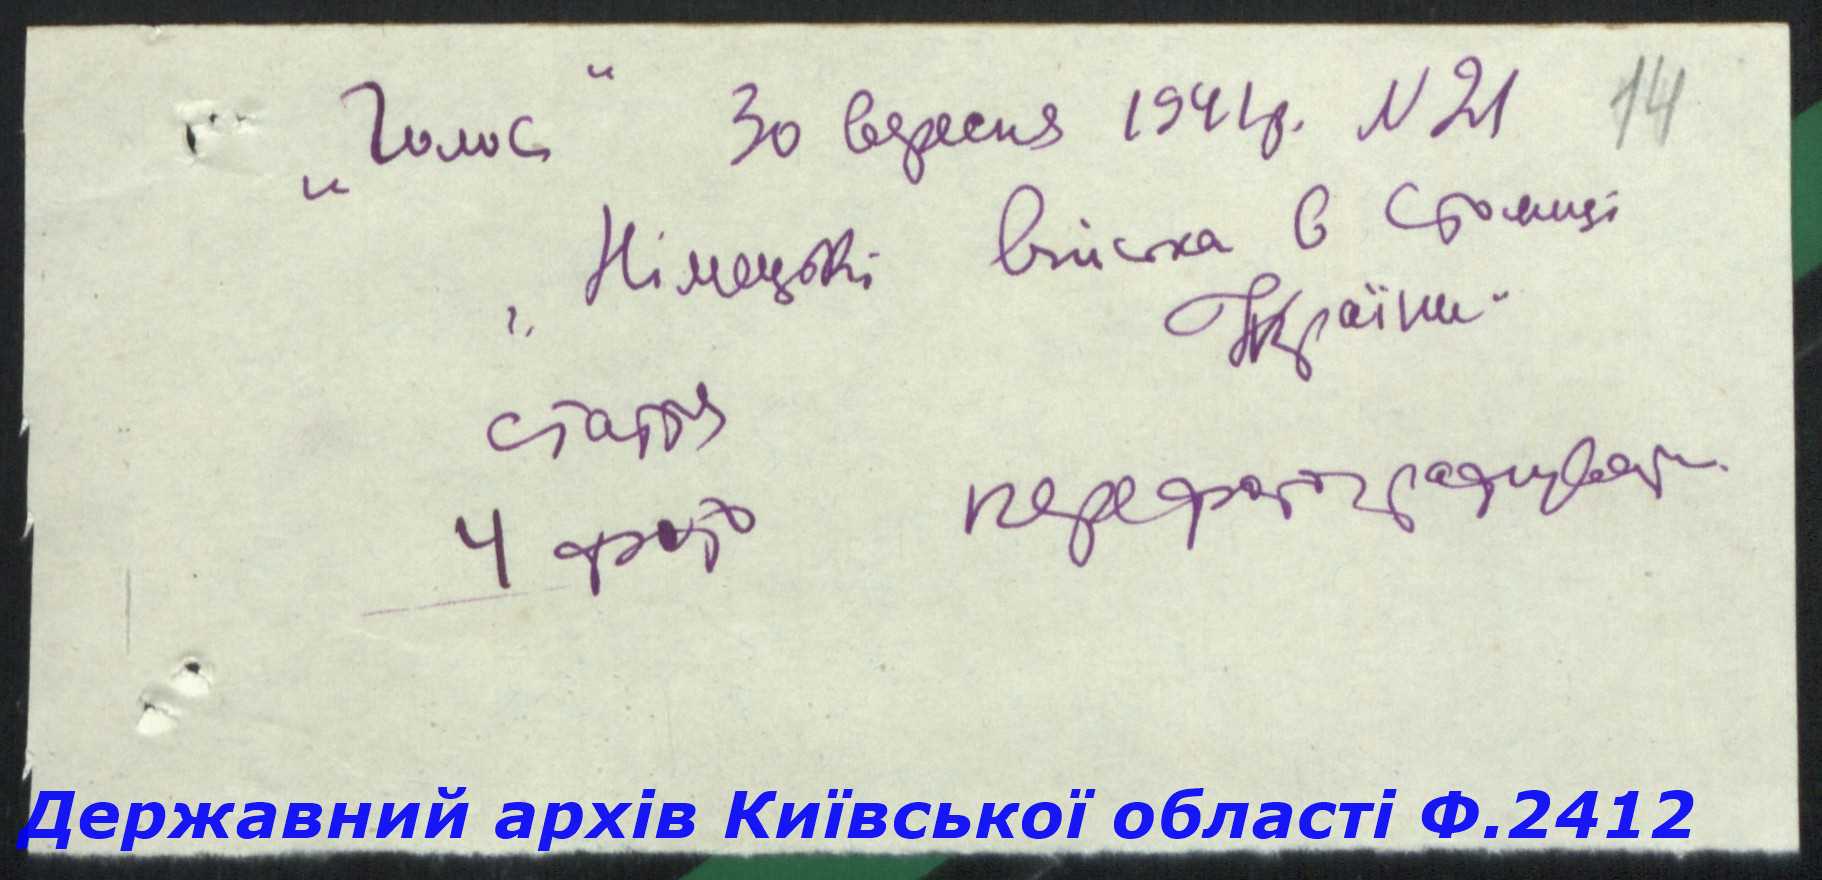 „Голос“ 30 вересня 1941р. N 21 14
„Німецькі війська в столиці
України“
стаття
4 фото перефотографувати.
Державний архів Київської області Ф.2412